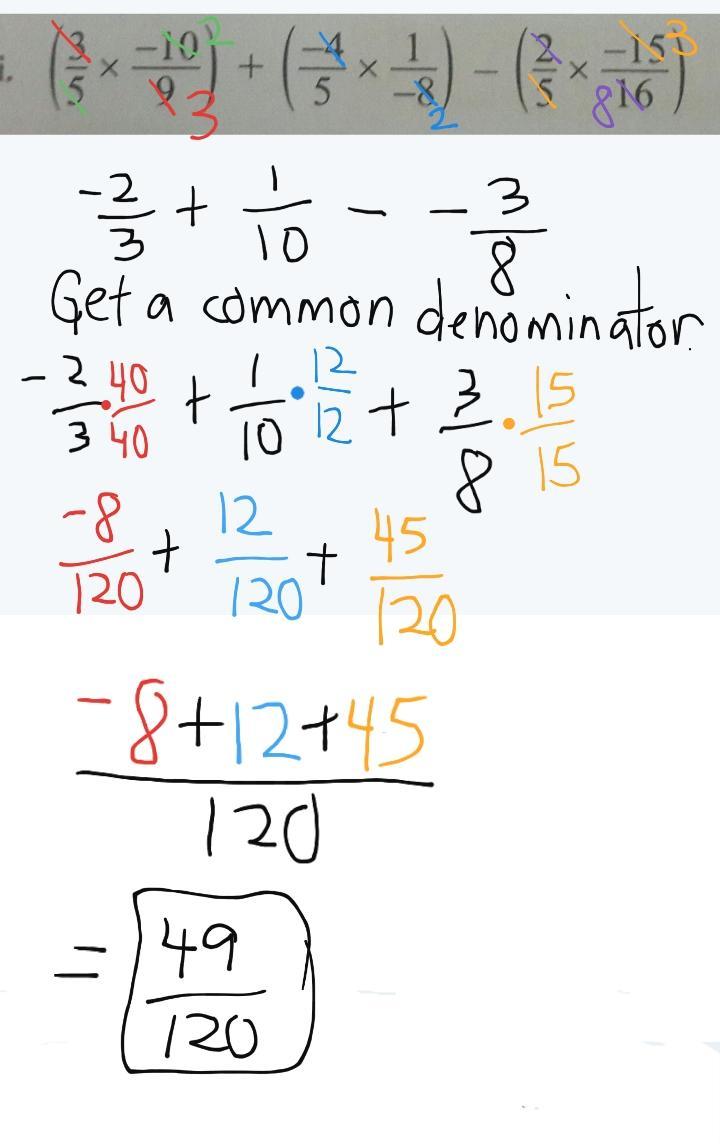 i. (3/5 × -10/9) + (-4/5 × 1/-8) - (2/5 × -15/16) 2 3 2 8 3
-2/3 + 1/10 - -3/8
Get a common denominator.
-2/3 · 40/40 + 1/10 · 12/12 + 3/8 · 15/15
-8/120 + 12/120 + 45/120
-8+12+45/120
= 49/120